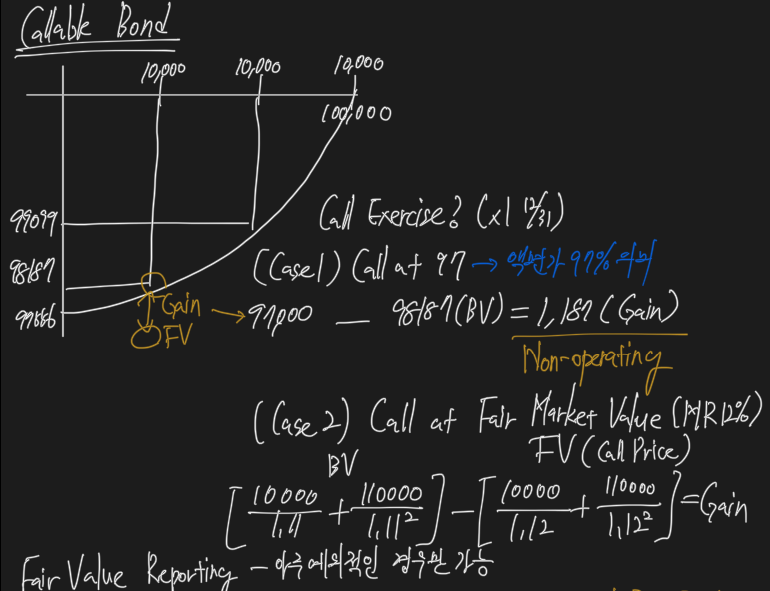 Callable Bond
10,000 10,000 10,000
100,000
99099
Call Exercise? (x1 12/31)
98187
(Case1) Call at 97 → 액면가 97% 의미
Gain → 97,000 — 98187(BV) = 1,187 (Gain)
FV
Non-operating
(Case 2) Call at Fair Market Value (MR12%)
BV FV (Call Price)
[10000/1.11 + 110000/1.11²] - [10000/1.12 + 110000/1.12²] = Gain
Fair Value Reporting - 아주 예외적인 경우만 가능